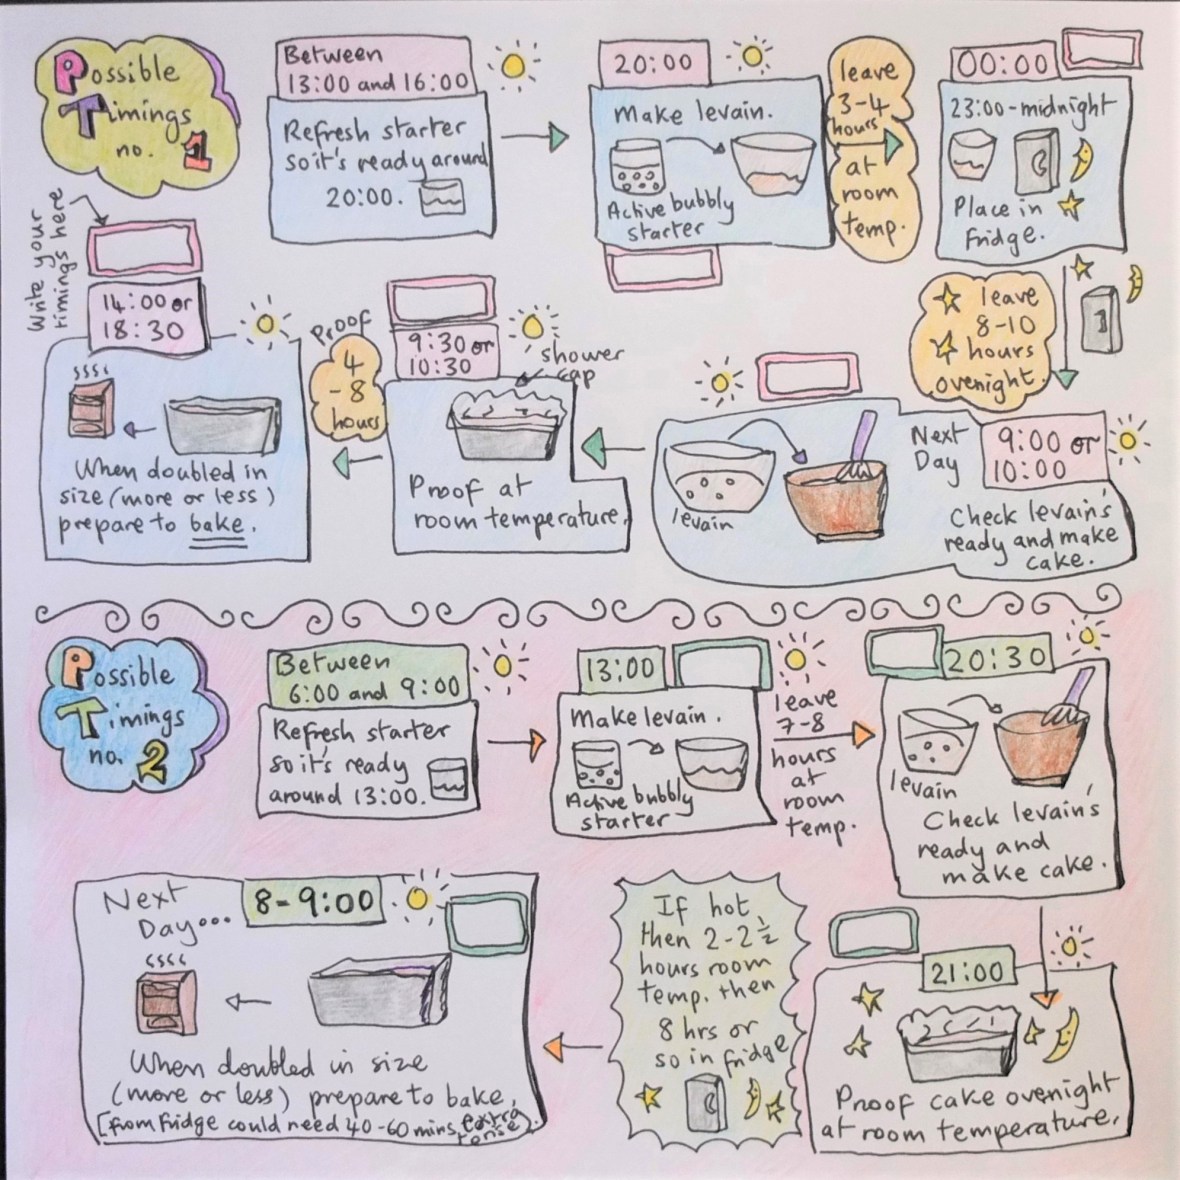 Possible
Timings
no. 1
Between
13:00 and 16:00
Refresh starter
so it's ready around
20:00.
20:00
Make levain.
Active bubbly
starter
leave
3-4
hours
at
room
temp.
00:00
23:00-midnight
Place in
fridge.
leave
8-10
hours
ovenight
Next
Day
9:00 or
10:00
levain
Check levain's
ready and make
cake.
9:30 or
10:30
shower
cap
Proof at
room temperature.
Proof
4
-8
hours
Write your
timings here
14:00 or
18:30
When doubled in
size (more or less)
prepare to bake.
Possible
Timings
no. 2
Between
6:00 and 9:00
Refresh starter
so it's ready
around 13:00.
13:00
Make levain.
Active bubbly
starter
leave
7-8
hours
at
room
temp.
20:30
levain
Check levain's
ready and
make cake.
21:00
Proof cake ovenight
at room temperature.
If hot,
then 2-2½
hours room
temp. then
8 hrs or
so in fridge
Next
Day...
8-9:00
When doubled in size
(more or less) prepare to bake,
[from fridge could need 40-60 mins extra